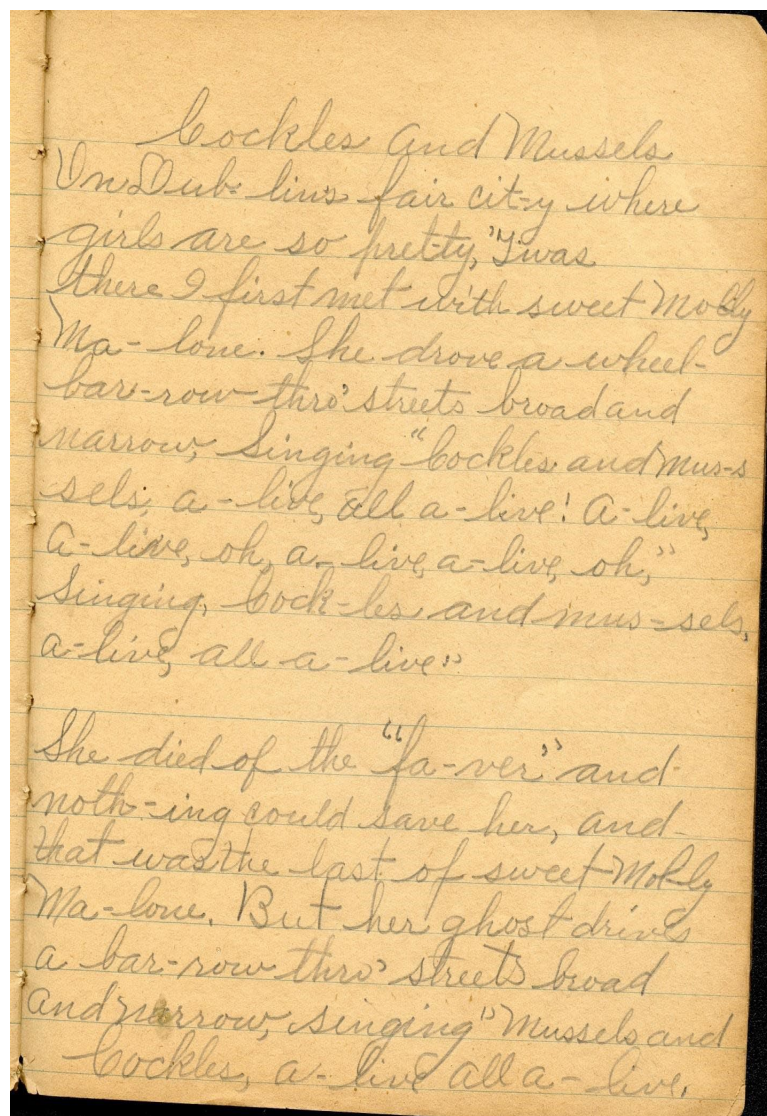 Cockles and Mussels
In Dub-lins fair cit-y where
girls are so pret-ty, 'Twas
there I first met with sweet Molly
Ma-lone. She drove a wheel-
bar-row thro' streets broad and
narrow, Singing "Cockles and mus-s
sels, a-live, all a-live! A-live,
a-live, oh, a-live, a-live, oh,"
Singing, Cock-les and mus-sels,
a-live, all a-live."
She died of the "fa-ver" and
noth-ing could save her, and
that was the last of sweet Mol-ly
Ma-lone. But her ghost drives
a bar-row thro' streets broad
and narrow, singing "Mussels and
Cockles, a-live all a-live.